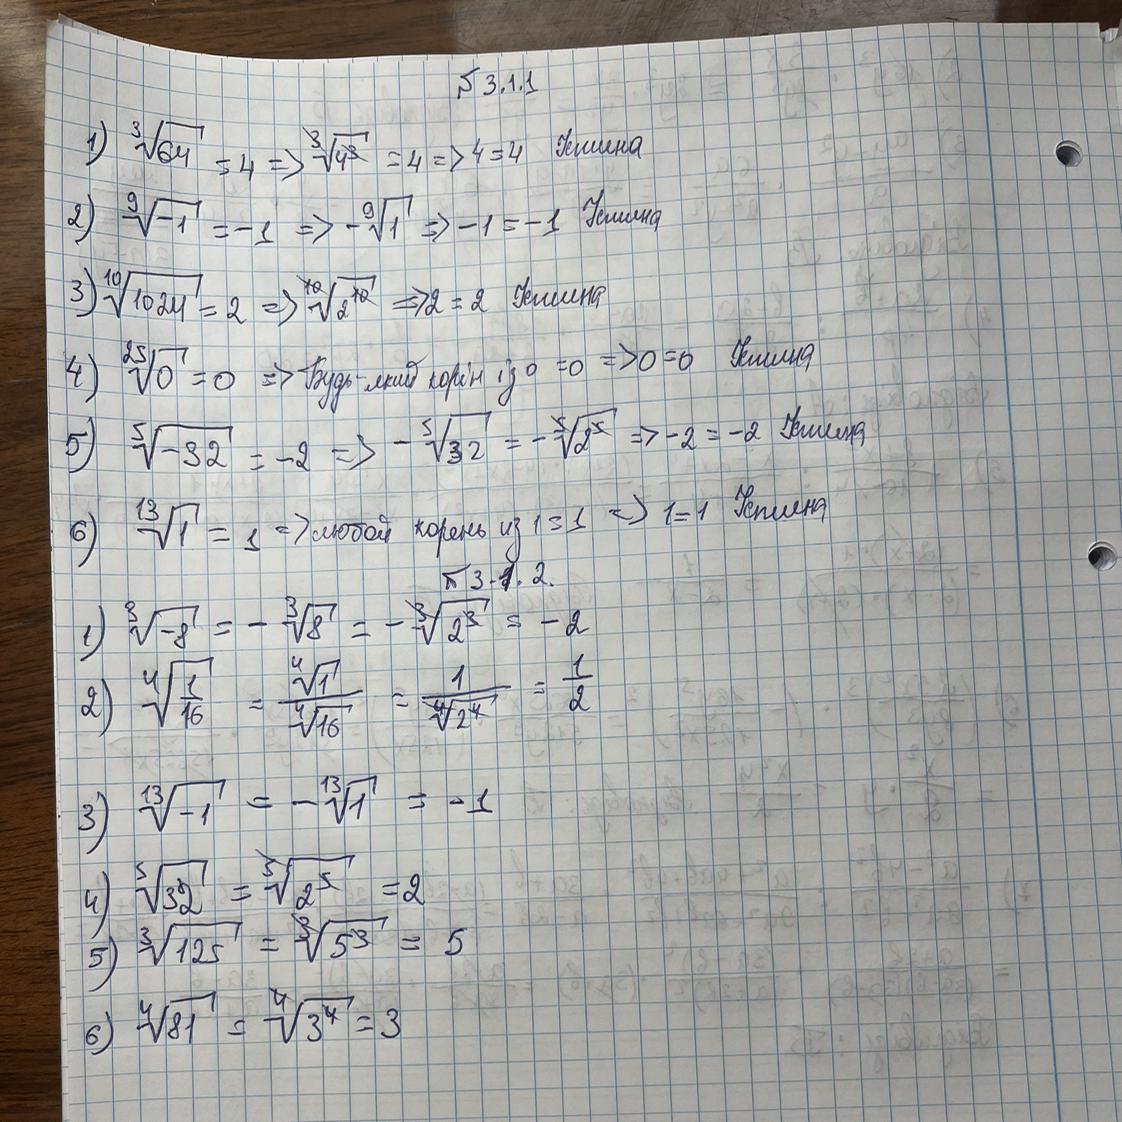 № 3.1.1
1) ∛64 = 4 => ∛4³ = 4 => 4 = 4 Істина
2) ⁹√-1 = -1 => -⁹√1 => -1 = -1 Істина
3) ¹⁰√1024 = 2 => ¹⁰√2¹⁰ => 2 = 2 Істина
4) ²⁵√0 = 0 => Будь-який корін із 0 = 0 => 0 = 0 Істина
5) ⁵√-32 = -2 => -⁵√32 = -⁵√2⁵ => -2 = -2 Істина
6) ¹³√1 = 1 => любой корень из 1 = 1 => 1 = 1 Істина
№ 3.1.2.
1) ∛-8 = -∛8 = -∛2³ = -2
2) ⁴√(1/16) = ⁴√1/⁴√16 = 1/⁴√2⁴ = 1/2
3) ¹³√-1 = -¹³√1 = -1
4) ⁵√32 = ⁵√2⁵ = 2
5) ∛125 = ∛5³ = 5
6) ⁴√81 = ⁴√3⁴ = 3